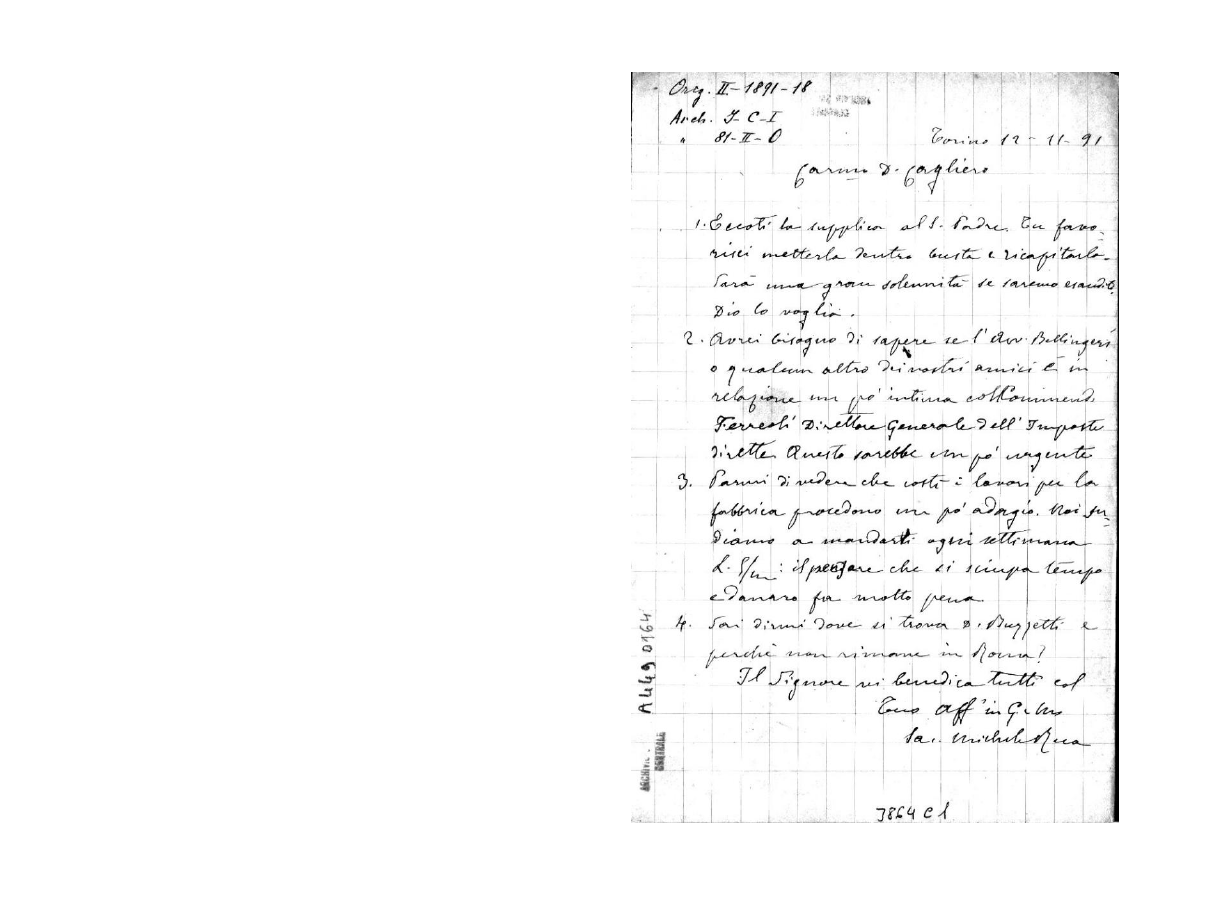 Orig. II-1891-18
Arch. I-C-I
" 81-II-O
Torino 12-11-91
Carmo D. Cagliero
1. Eccoti la supplica al S. Padre. Tu favo-
risci metterla dentro busta e ricapitarla.
Sarà una gran solennità se saremo esauditi.
Dio lo voglia.
2. Avrei bisogno di sapere se l'Avv. Bellingeri
o qualcun altro dei nostri amici è in
relazione un pò intima col Commend.
Ferreoli Direttore Generale dell'Imposte
dirette. Questo sarebbe un pò urgente
3. Parmi di vedere che costì i lavori per la
fabbrica procedono un pò adagio. Noi su-
diamo a mandarti ogni settimana
L. 5/m: il pensare che si sciupa tempo
e danaro fa molto pena
4. Sai dirmi dove si trova D. Buzzetti e
perchè non rimane in Roma?
Il Signore vi benedica tutti col
Tuo aff in G. e M.
Sac. Michele Rua
A4490164
ARCHIVIO
CENTRALE
3864 C 1